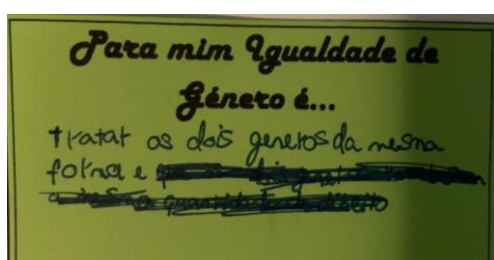 Para mim Igualdade de
Género é...
tratar os dois generos da mesma
forma e